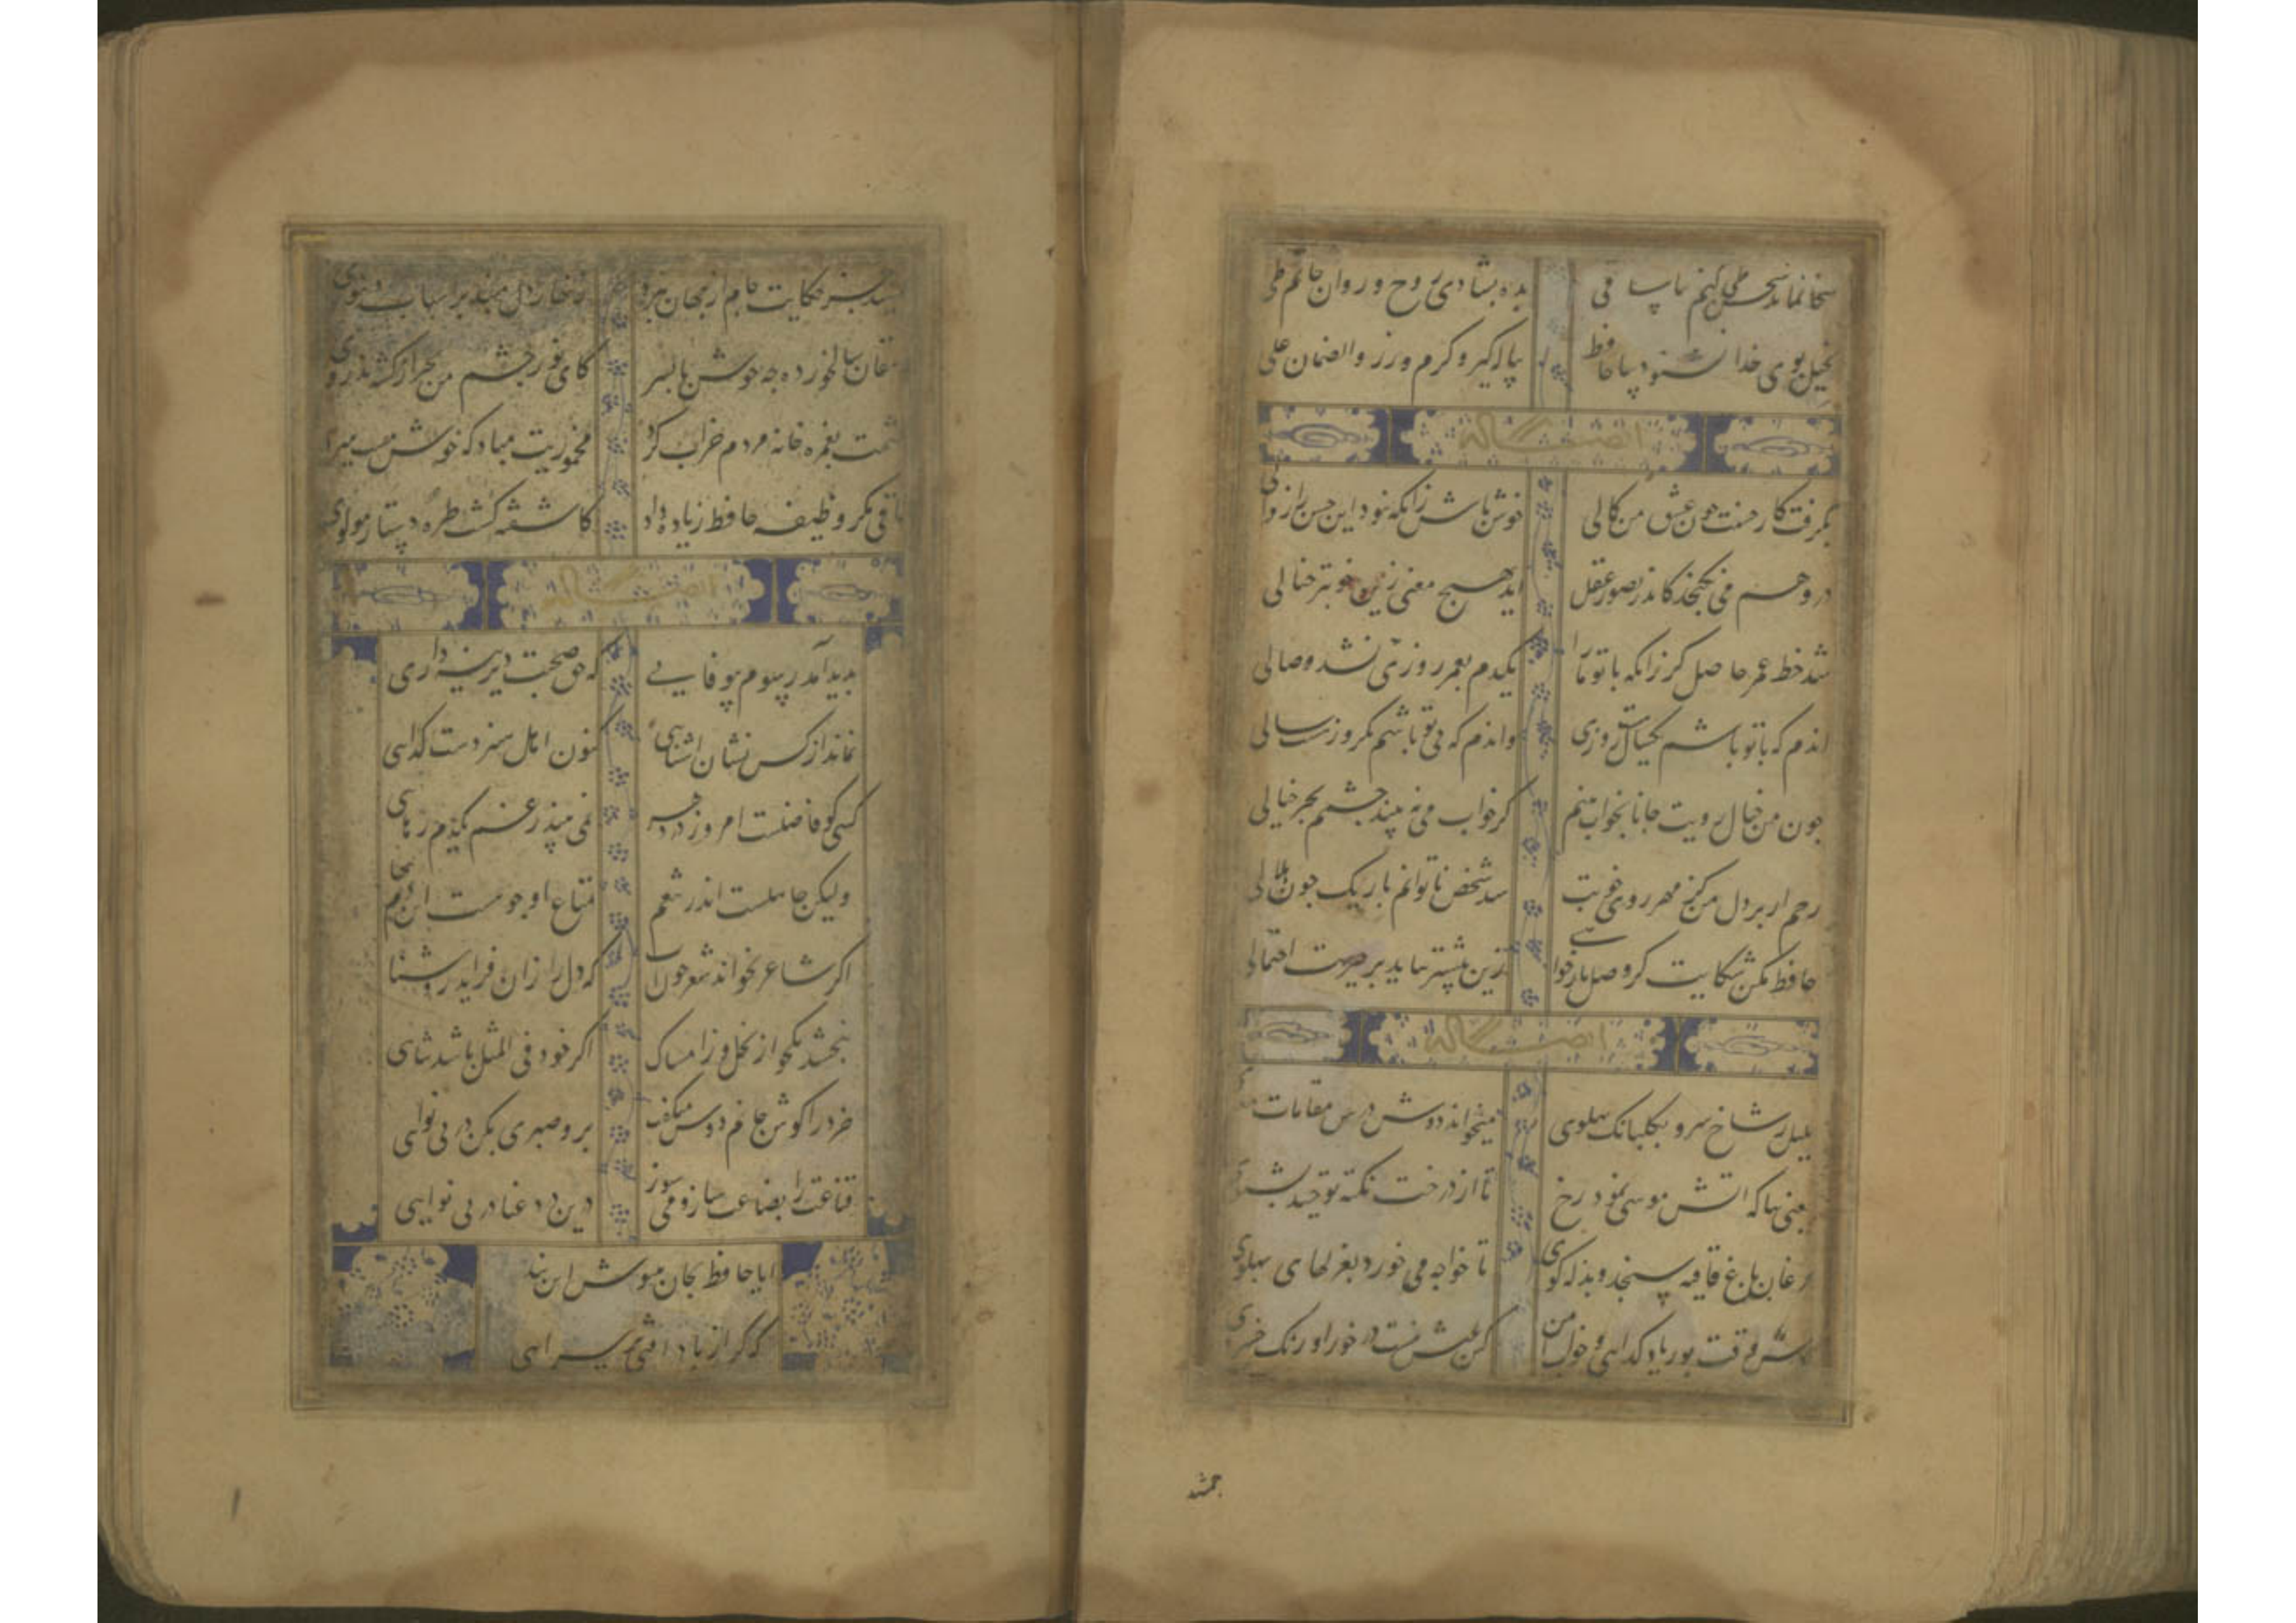 سخا نماند سخن طی کنم بیا ساقی
بده بشادی روح و روان حاتم طی
بخیل بوی خدا نشنود بیا حافظ
پیاله گیر و کرم ورز والضمان علی
ایضا له
بگرفت کار حسنت چون عشق من کمالی
خوش باش زانکه نبود این حسن را زوالی
در وهم می نگنجد کاندر تصور عقل
آید بهیچ معنی زین خوبتر خیالی
شد حظ عمر حاصل گر زانکه با تو ما را
یکدم بعمر روزی شد وصالی
اندم که با تو باشم یکسال هست روزی
واندم که بی تو باشم یکروز هست سالی
چون من خیال رویت جانا بخواب بینم
کز خواب می نبیند چشمم بجز خیالی
رحم ار بر دل من کز مهر روی خوبت
شد شخص ناتوانم باریک چون هلالی
حافظ مکن شکایت گر وصل یار خواهی
زین بیشتر بباید بر هجرت احتمالی
ایضا له
بلبل ز شاخ سرو بگلبانک پهلوی
میخواند دوش درس مقامات
یعنی بیا که اتش موسی نمود رخ
تا از درخت نکته توحید بشنوی
مرغان باغ قافیه سنجند و بذله گوی
تا خواجه می خورد بغزلهای پهلوی
خوش وقت بوریا و گدایی و خواب امن
کین عیش نیست در خور اورنک خسروی
جمشید
جمشید جز حکایت جام از جهان نبرد
زنهار دل مبند بر اسباب دنیوی
دهقان سالخورده چه خوش گفت با پسر
کای نور چشم من بجز از کشته ندروی
چشمت بغمزه خانه مردم خراب کرد
مخموریت مباد که خوش مست میروی
ساقی مگر وظیفه حافظ زیاده داد
کاشفته گشت طره دستار مولوی
ایضا له
پدید آمد رسوم بیوفایی
که حق صحبت دیرینه داری
نماند از کس نشان اشنایی
کنون اهل هنر دست گدایی
کسی کو فاضلست امروز در دهر
نمی بیند ز غم یکدم رهایی
ولیکن جاهلست اندر تنعم
متاع او چو هست این دم بهایی
اگر شاعر بخواند شعر چون آب
که دل را زان فزاید روشنایی
نبخشد یکجو از بخل و ز امساک
اگر خود فی المثل باشد ثنایی
خرد در گوش جانم دوش میگفت
برو صبری بکن در بی نوایی
قناعت را بضاعت ساز و می سوز
درین درد و عنا در بی نوایی
ایا حافظ بجان بنیوش این پند
که گر از پا در افتی بر سر ایی